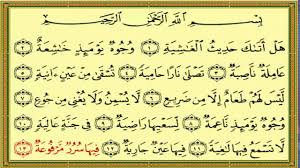 بِسْمِ ٱللَّهِ ٱلرَّحْمَٰنِ ٱلرَّحِيمِ
هَلْ أَتَىٰكَ حَدِيثُ ٱلْغَٰشِيَةِ ١ وُجُوهٌ يَوْمَئِذٍ خَٰشِعَةٌ ٢
عَامِلَةٌ نَّاصِبَةٌ ٣ تَصْلَىٰ نَارًا حَامِيَةً ٤ تُسْقَىٰ مِنْ عَيْنٍ ءَانِيَةٍ ٥
لَّيْسَ لَهُمْ طَعَامٌ إِلَّا مِن ضَرِيعٍ ٦ لَّا يُسْمِنُ وَلَا يُغْنِي مِن جُوعٍ ٧
وُجُوهٌ يَوْمَئِذٍ نَّاعِمَةٌ ٨ لِّسَعْيِهَا رَاضِيَةٌ ٩ فِي جَنَّةٍ عَالِيَةٍ ١٠
لَّا تَسْمَعُ فِيهَا لَٰغِيَةً ١١ فِيهَا عَيْنٌ جَارِيَةٌ ١٢ فِيهَا سُرُرٌ مَّرْفُوعَةٌ ١٣